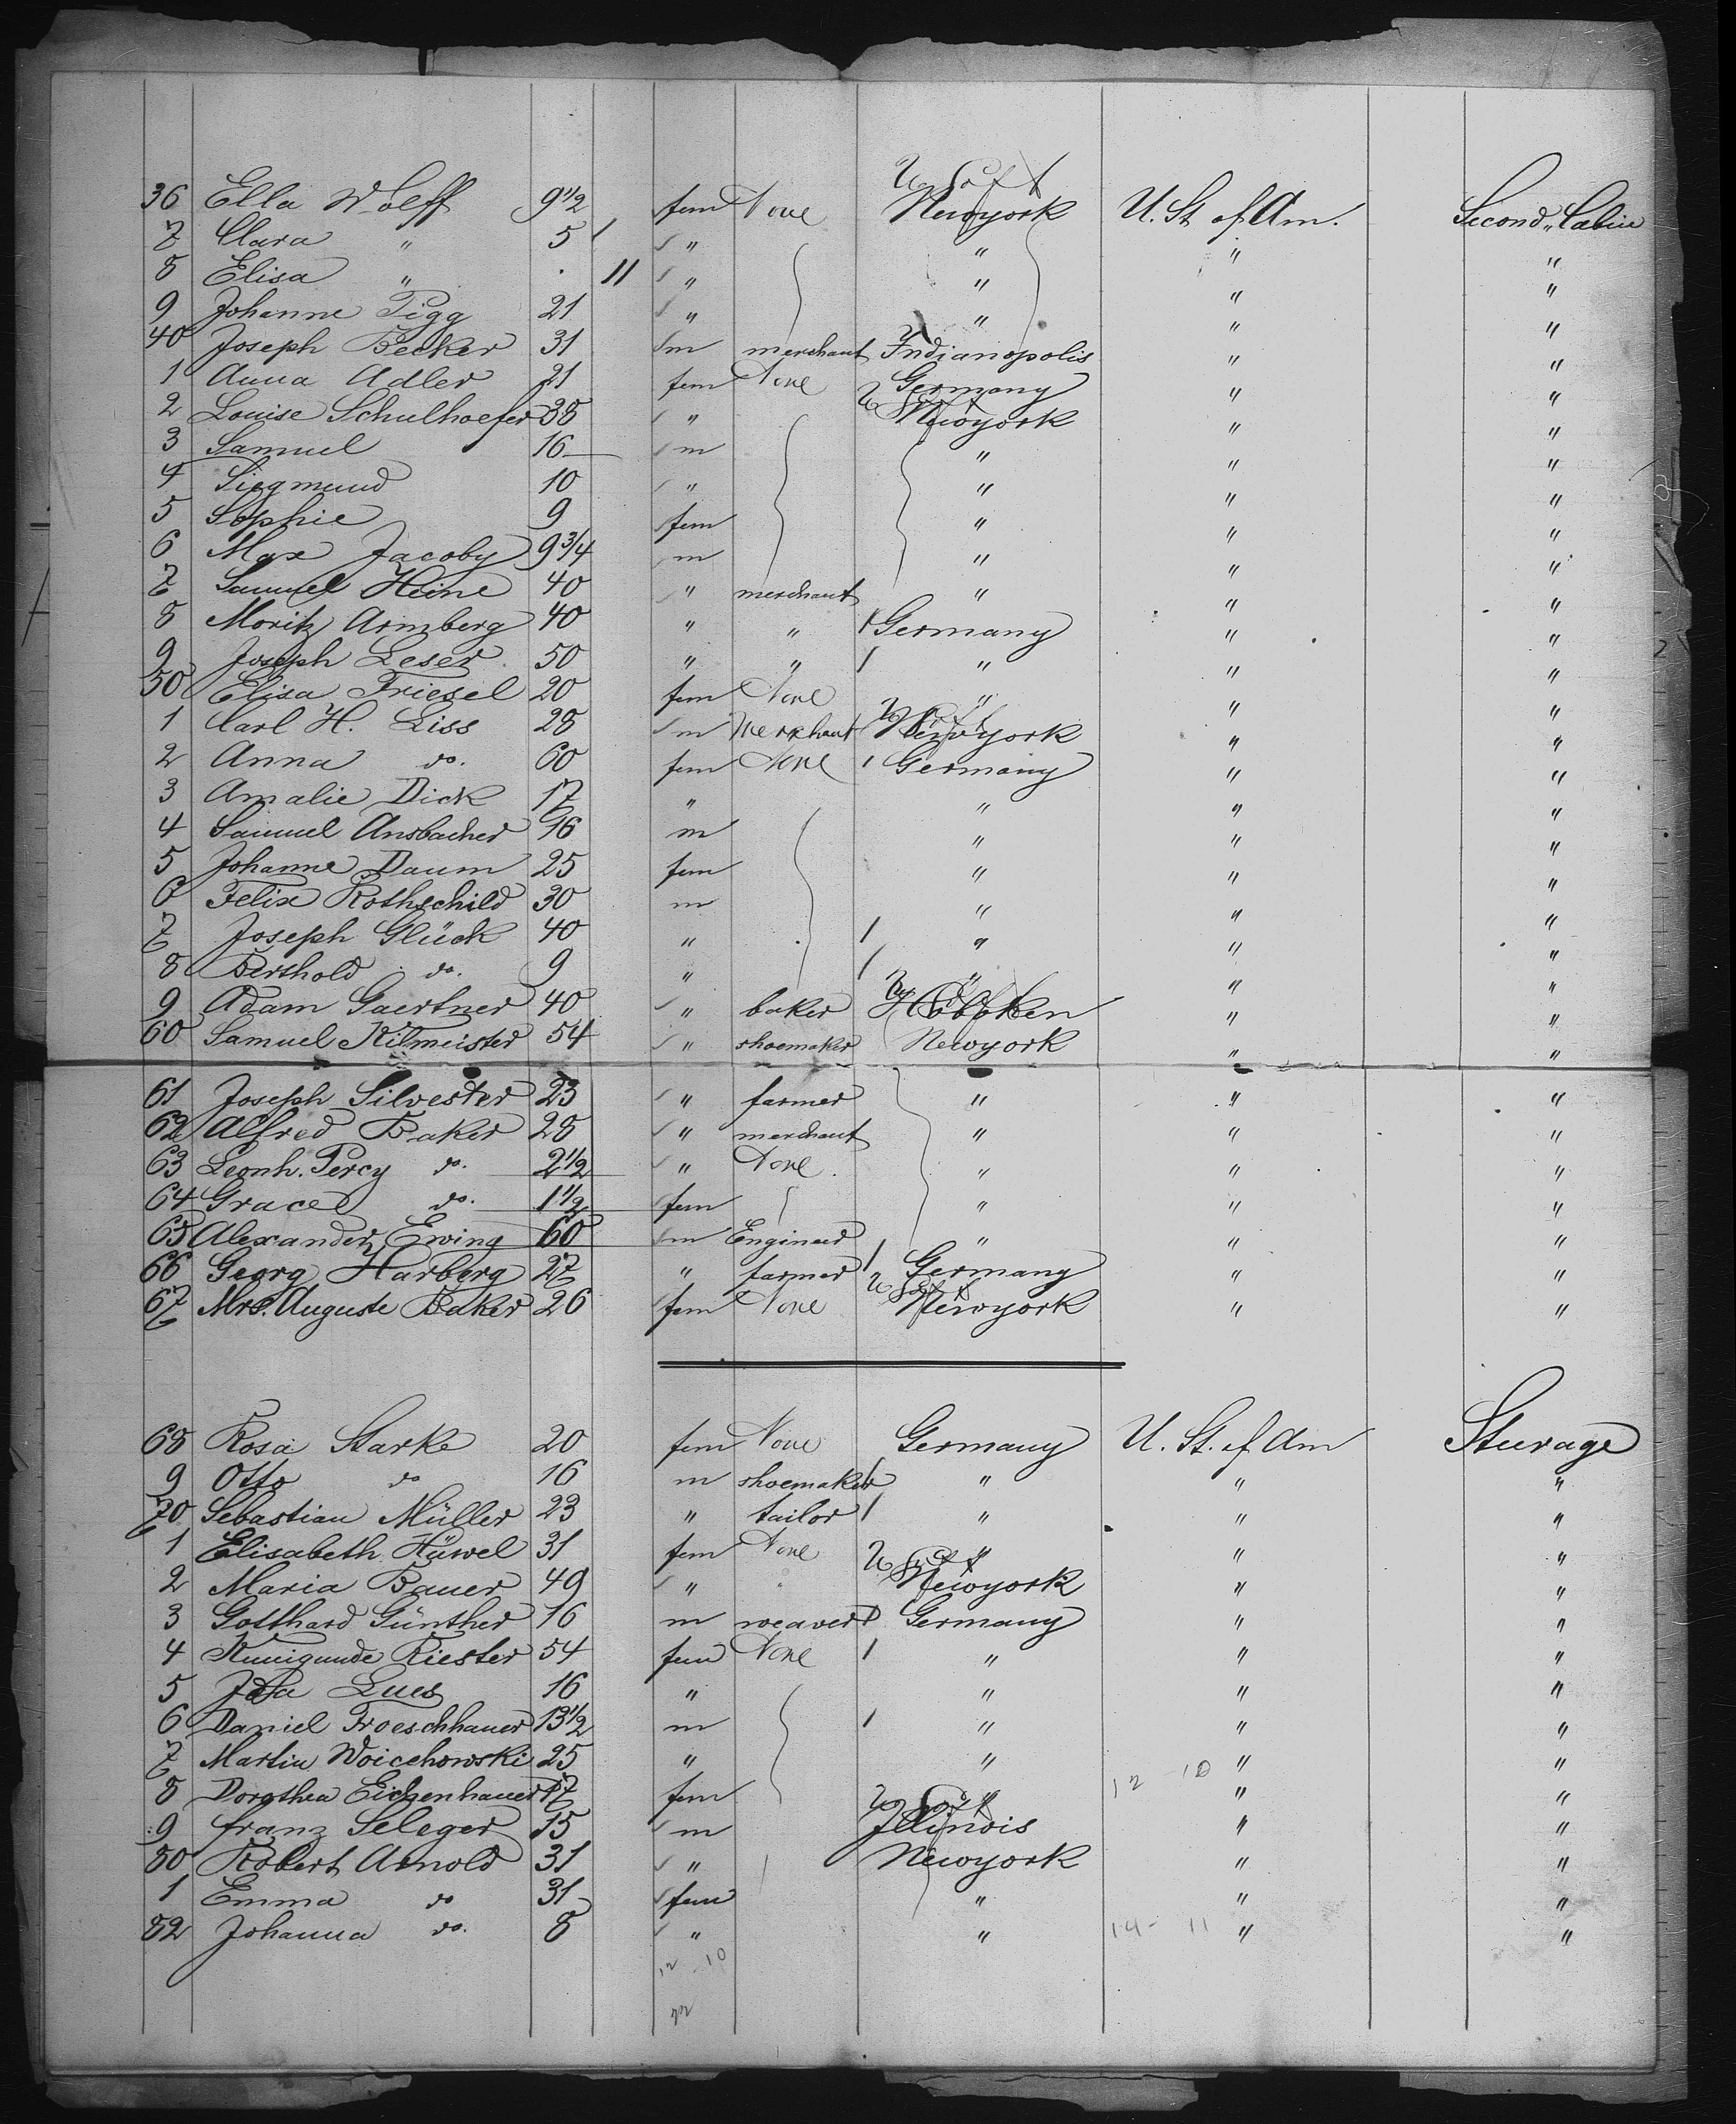 U S of A
36 Ella Wolff 9 1/2 fem None Newyork U. St. of Am. Second Cabin
7 Clara " 5 " " " "
8 Elisa " 11 " " " "
9 Johanne Pigg 21 " " " "
40 Joseph Becker 31 m merchant Indianopolis " "
1 Anna Adler 21 fem None Germany " "
2 Louise Schulhoefer 38 " U S of A Newyork " "
3 Samuel 16 m " " "
4 Siegmund 10 " " " "
5 Sophie 9 fem " " "
6 Max Jacoby 9 3/4 m " " "
7 Samuel Heine 40 " merchant " " "
8 Moritz Armberg 40 " " Germany " "
9 Joseph Leser 50 " " " " "
50 Elisa Friesel 20 fem None " " "
1 Carl H. Liss 28 m Merchant Newyork " "
2 Anna do. 60 fem None Germany " "
3 Amalie Dick 17 " " " "
4 Samuel Ansbacher 16 m " " "
5 Johanne Daum 25 fem " " "
6 Felix Rothschild 30 m " " "
7 Joseph Glück 40 " " " "
8 Berthold do. 9 " " " "
9 Adam Gaertner 40 " baker Hoboken " "
60 Samuel Kilmeister 54 " shoemaker Newyork " "
61 Joseph Silvester 23 " farmer " " "
62 Alfred Baker 28 " merchant " " "
63 Leonh. Percy do. 2 1/2 " None " " "
64 Grace do. 1 1/2 fem " " "
65 Alexander Ewing 60 m Engineer " " "
66 Georg Harberg 27 " farmer Germany " "
67 Mrs. Auguste Baker 26 fem None U S of A Newyork " "
68 Rosa Starke 20 fem None Germany U. St. of Am Sturage
9 Otto do 16 m shoemaker " " "
70 Sebastian Müller 23 " tailor " " "
1 Elisabeth Hüwel 31 fem None " " "
2 Maria Bauer 49 " " U S of A Newyork " "
3 Gotthard Günther 16 m weaver Germany " "
4 Kunigunde Riester 54 fem None " " "
5 Lues 16 " " " "
6 Daniel Froeschhauer 13 1/2 m " " "
7 Martin Woicehowski 25 " " " "
8 Dorothea Eichenhauer 17 fem " 12 10 " "
9 franz Seleger 15 m U S of A Illinois " "
80 Robert Arnold 31 " Newyork " "
1 Emma do 31 fem " " "
82 Johanna do. 8 " " 14 - 11 " "
12 - 10
22